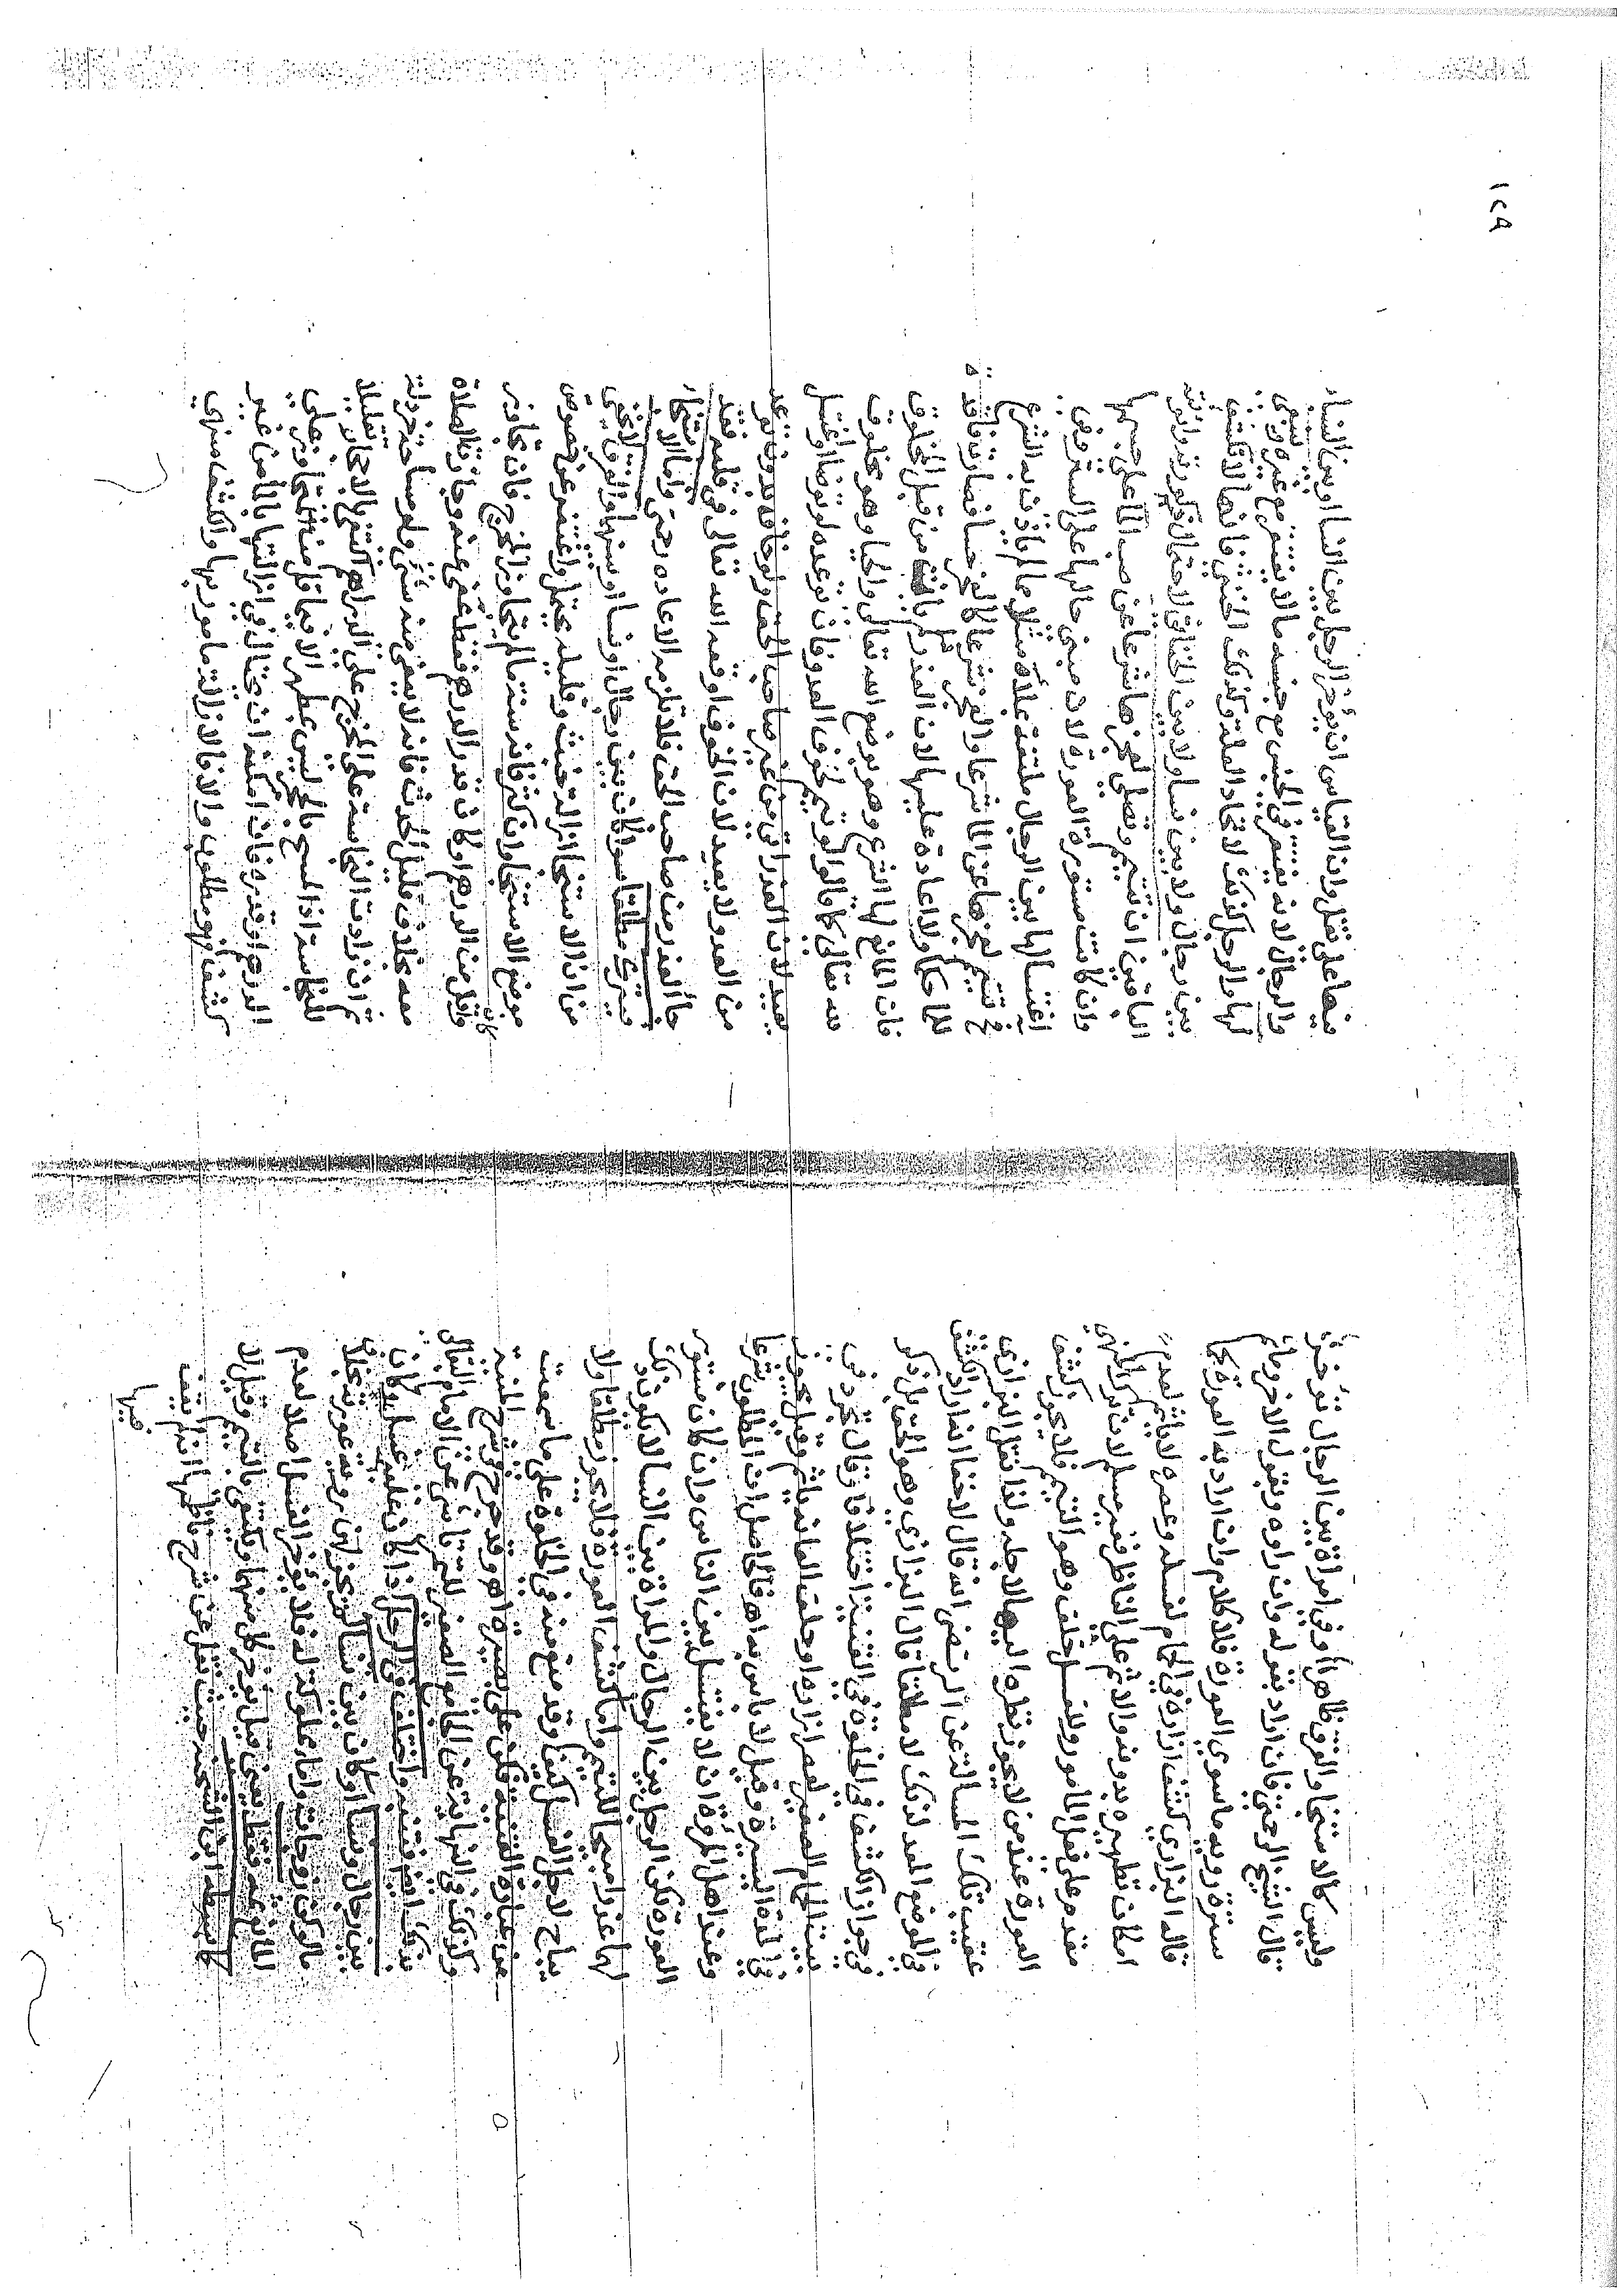 وليس كالاستنجا والفرق ظاهر اوفي امراة بين الرجال تؤخر
قال الشيخ الرحمتي فان اراد بقوله وان راوه وبقول الاخر
سترة رؤية ما سوى العورة فلا كلام وان اراد به العورة كما
قاله البزازي كشف ازاره في الحمام لغسله وعصره لا ياثم لعدم
امكان تطهيره بدونه والاثم على الناظر فغير مسلم لان ترك المنهي
مقدم على فعل المامور وللغسل خلف وهو التيمم فلا يجوز كشف
العورة عند من لا يجوز نظره اليها لاجله ولذا نقل البزازي
عقيب تلك المسالة عن المرتضى انه قال لاخفا ان اراد كشف
في الموضع المعد لذلك لا مطلقا قال البزازي وهو الحق بل ذكر
في جواز الكشف في الخلوة في القنية اختلافا وقال تجرد في
بيت الحمام الصغير لعصر ازاره او حلق العانة ياثم وقيل يجوز
في المدة اليسيرة وقيل لا باس به اه فالحاصل ان المطلوب شرعا
وعند اهل المروة ان لا يغتسل بين الناس وان كان مستور
العورة لكن الرجل بين الرجال والمراة بين النسا لا يكون ذلك
لها عذرا مبيحا للتيمم واما كشف العورة فلا يجوز مطلقا ولا
يباح لاجل الغسل كيف وقد منع منه في الخلوة على ما سمعت
من عبارة القنية فكن على بصيرة اه وقد صرح في شرح المنية
وكذلك في النهاية عن الجامع الصغير للتمرتاشي عن الامام البقالي
بذلك ايضا فتنبه واختلف في الرجل اذا كان عليه غسل وكان
بين رجال ونسا اوكان بين نسا رؤية عورته بخلاف
مالوكن زوجاته واما مملوكته له فلا يؤخر الغسل اصلا لعدم
المانع عنه فقط يعني قيل يؤخر كل منهما ويكتفي بالتيمم وقيل لا
كما بسطه ابن الشحنة حيث نقل عن شرح ناظمها انه لم يقف
فيها
١٢٩
منها على نقل وان القياس ان يؤخر الرجل بين النسا اوبين النسا
والرجال لانه يغتفر في الجنس مع جنسه مالا يغتفر مع غيره وينبغي
لها والرجل كذلك لاتحاد العلة وكذلك الخنثى فانها لا تكشف
بين رجال ولا بين نسا ولا بين الخناثى لاحتمال ذكورته وانوثة
الباقين ان تتيمم وتصلي لعجزها شرعا عن صب الماء على جسمها
وان كانت مستورة العورة لان مبنى حالها على الستر وفي
اغتسالها بين الرجال ملتفة بملاءة مثلا ما لم ياذن به الشرع
فتتيمم لعجزها عن الماء شرعا والعجز شرعا كالعجز حسا فصارت فاقدة
للما حكما ولا اعادة عليها لان العذر لم يات من قبل المخلوق
فان المانع لها الشرع وهو بوضع الله تعالى والحيا وهو مخلوق
لله تعالى كما قالوا لو تيمم لخوف العدو فان توعده لو توضا او اغتسل
يعيد لان العذر اتى من غير صاحب الحق ولو خاف بدون توعد
من العدو لا يعيد لان الخوف اوقعه الله تعالى في قلبه فقد
جا العذر من صاحب الحق فلا تلزمه الاعادة رحمتي واما الاستنجا
فيترك مطلقا سوا كان بين رجال او نسا او بينهما والفرق لا يخفى
من ان الاستنجا ازالة خبث وقليله يحتمل واغتفر عن خصوص
موضع الاستنجا وان كثر فانه سنة ما لم يتجاوز المخرج فان تجاوز
وكان واقل من الدرهم او كان قدر الدرهم فقط عفي عنه وجازت الصلاة
معه بخلاف قليل الحدث فانه لا يعفى منه شي ولو مساحة خردلة
ثم ان زادت النجاسة على المخرج على الدرهم اكتفي بالاحجار تقليلا
للنجاسة اذ المسح بالحجر ليس بمطهر الا فيما قل منه المتجاوز على
الدرهم او قدره فان امكنه ان يحتال في ازالتها بالماء من غير
كشف فهو مطلوب والا فالازالة مامور بها والكشف منهي